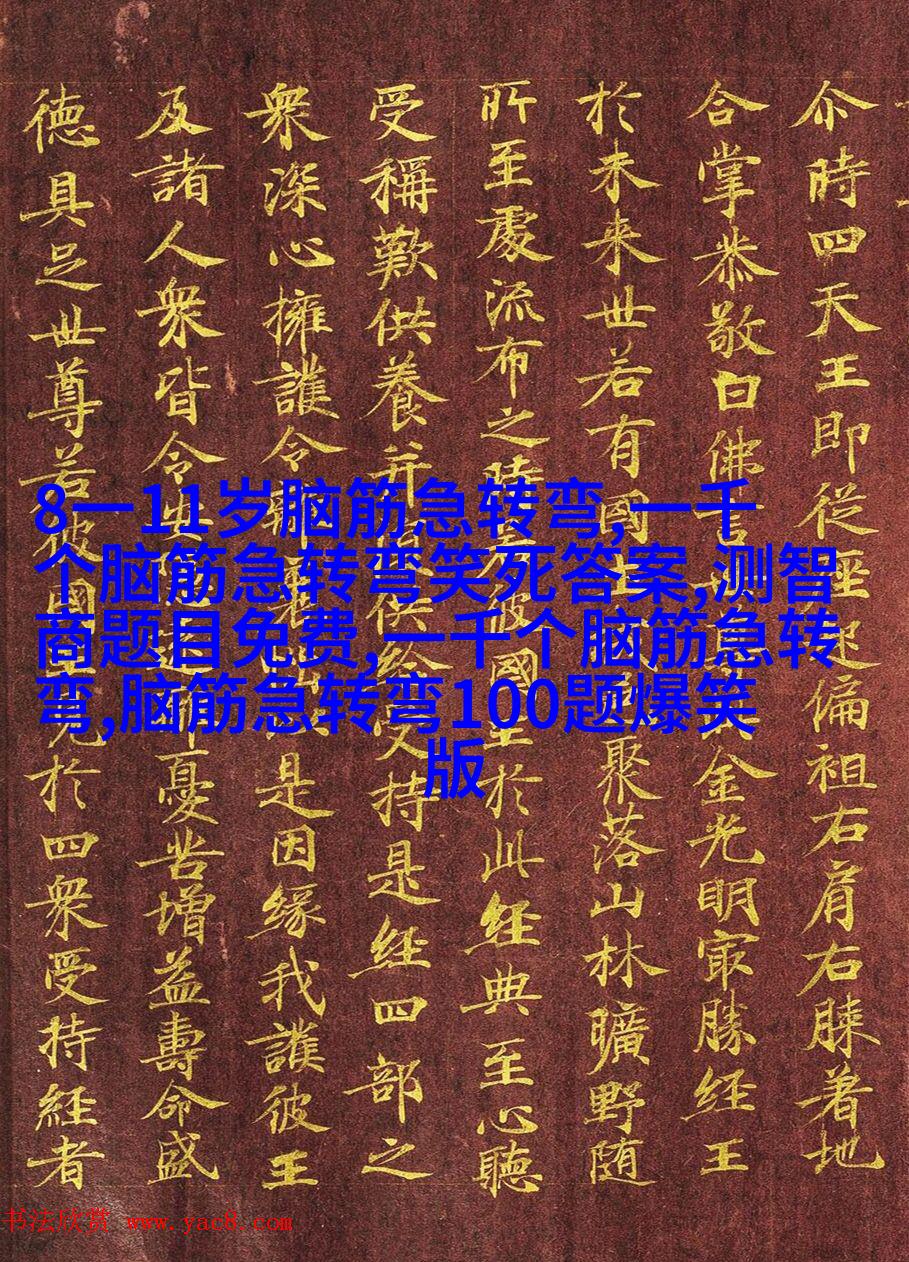 尒時四天王即從座起偏袒右肩右膝著地
合掌恭敬白佛言金光明寂勝經王
於未来世若有國聚落山林曠野随
所至處流布之時彼國王於此經典至心聽
受稱歎供養并供給受持是經四部之
衆深心擁護令是因緣我護彼王
及諸人衆皆令憂苦增益壽命威
徳具足世尊若彼國見於四衆受持經者
8一11岁脑筋急转弯,一千
个脑筋急转弯笑死答案,测智
商题目免费,一千个脑筋急转
弯,脑筋急转弯100题爆笑
版
书法欣赏 www.yac8.com